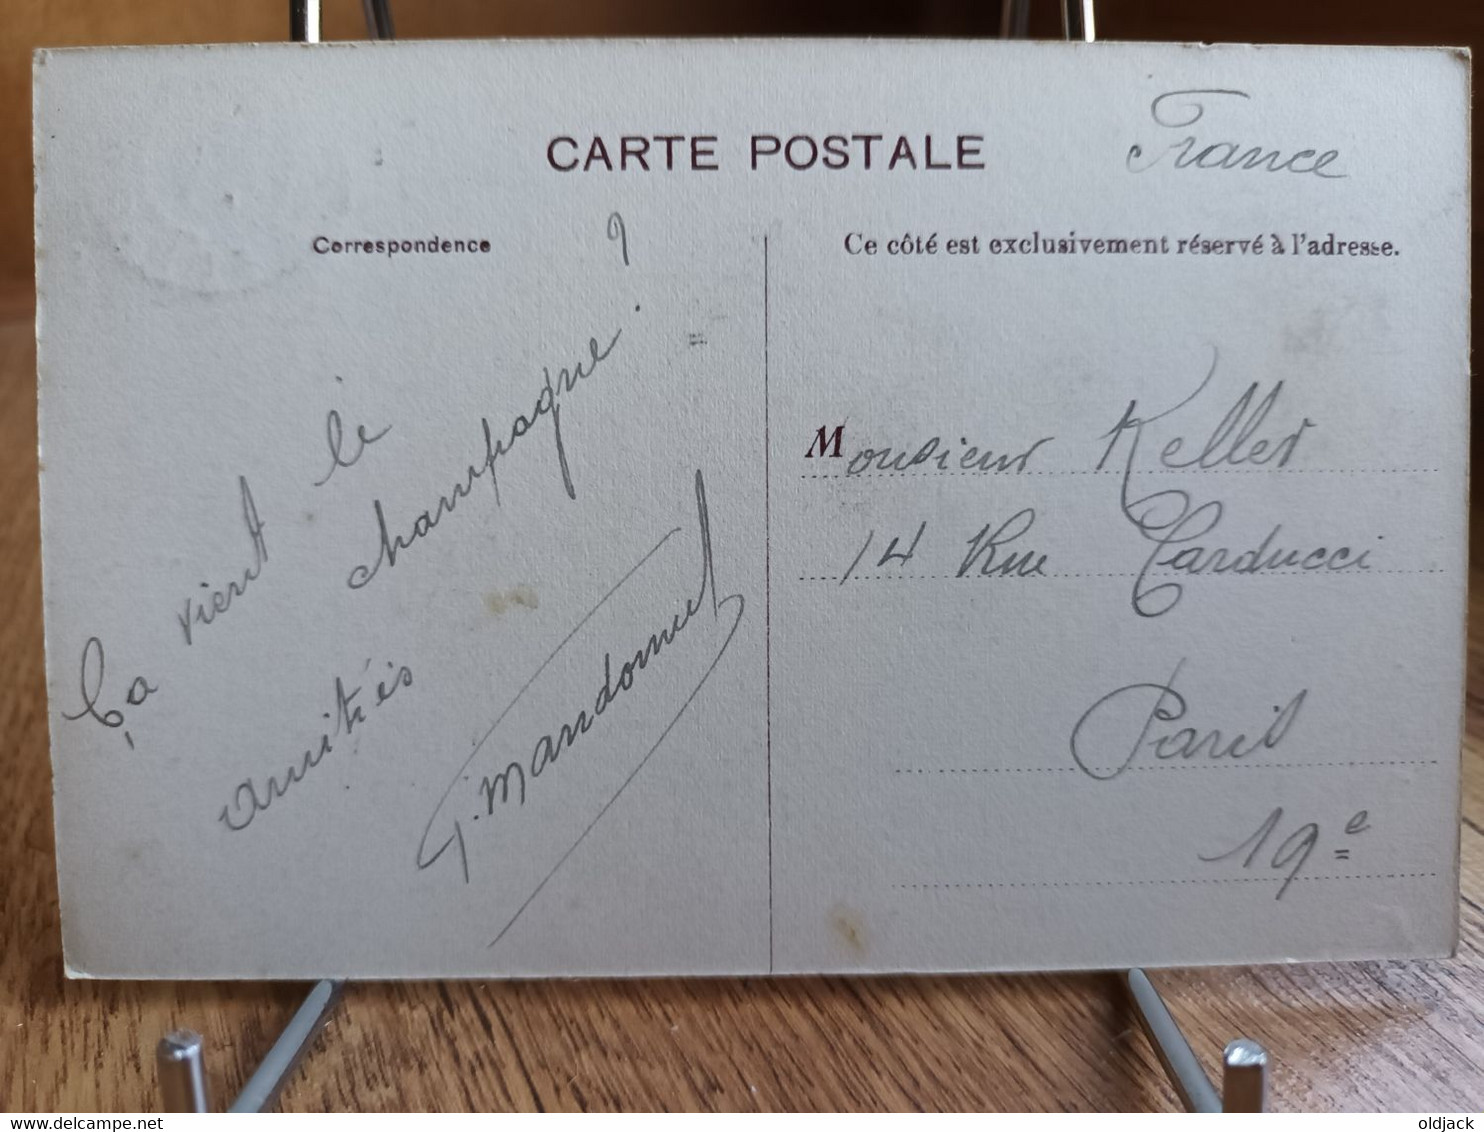 CARTE POSTALE
France
Correspondence
Ce côté est exclusivement réservé à l'adresse.
Ça vient le
champagne ?
amitiés
Monsieur Keller
14 Rue Carducci
Paris
19e
delcampe.net
oldjack